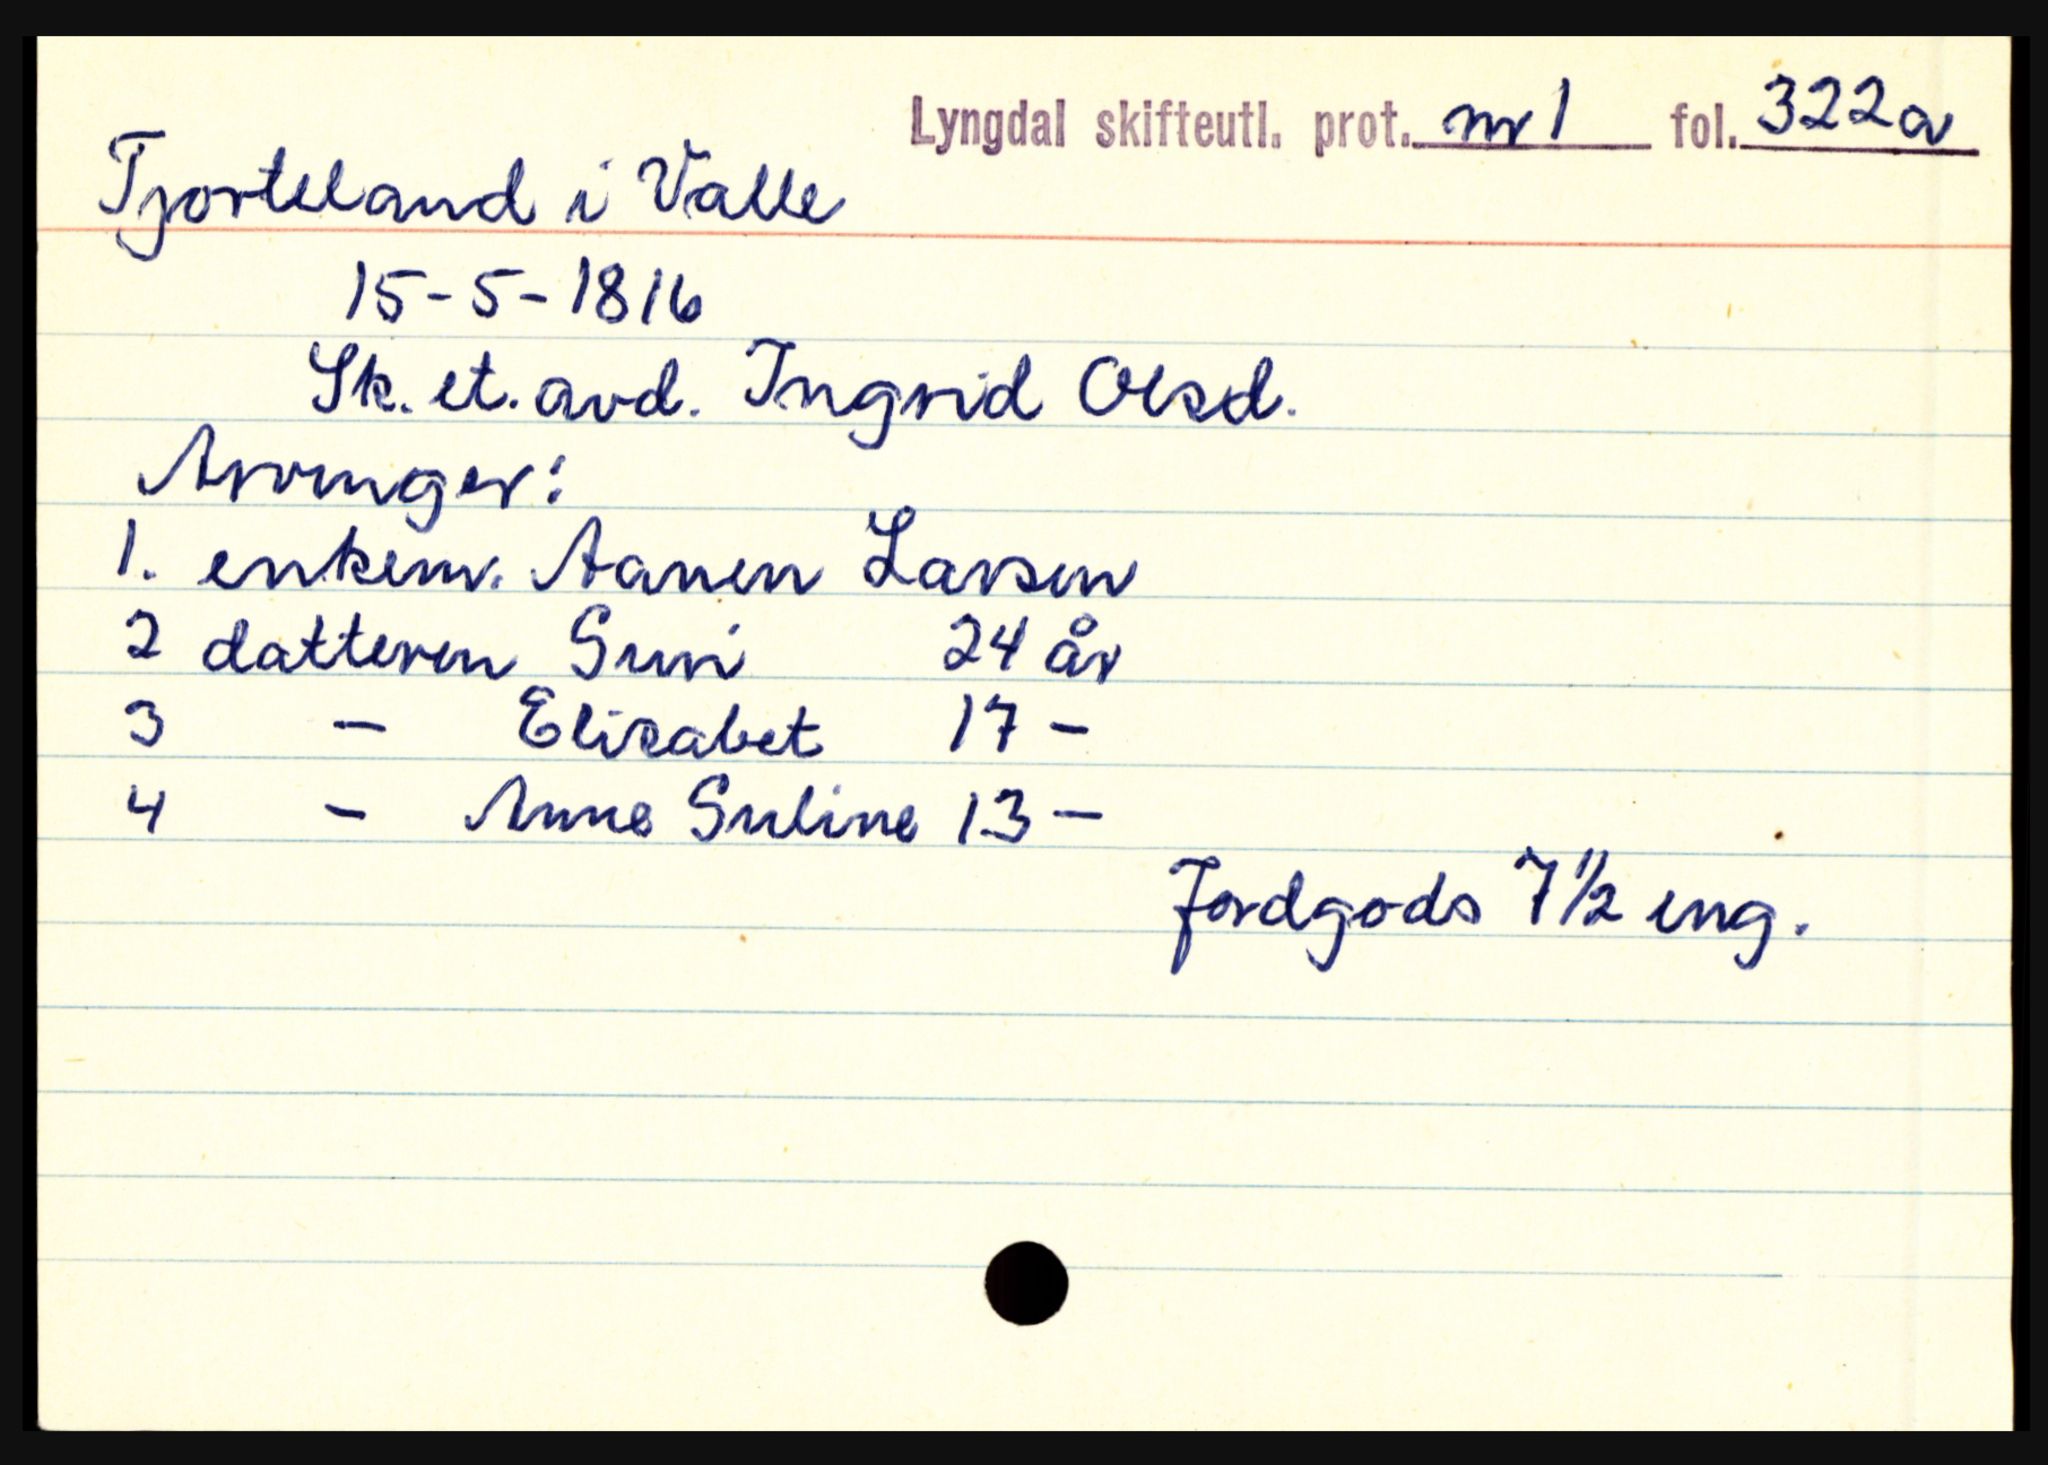 Lyngdal skifteutl. prot. nr 1 fol. 322a
Tjorteland i Valle
15-5-1816
Sk. et. avd. Ingrid Olsd.
Arvinger:
1. enkem. Aanen Larsen
2 datteren Siri 24 år
3 - Elisabet 17 -
4 - Anne Seline 13 -
Jordgods 7 1/2 eng.